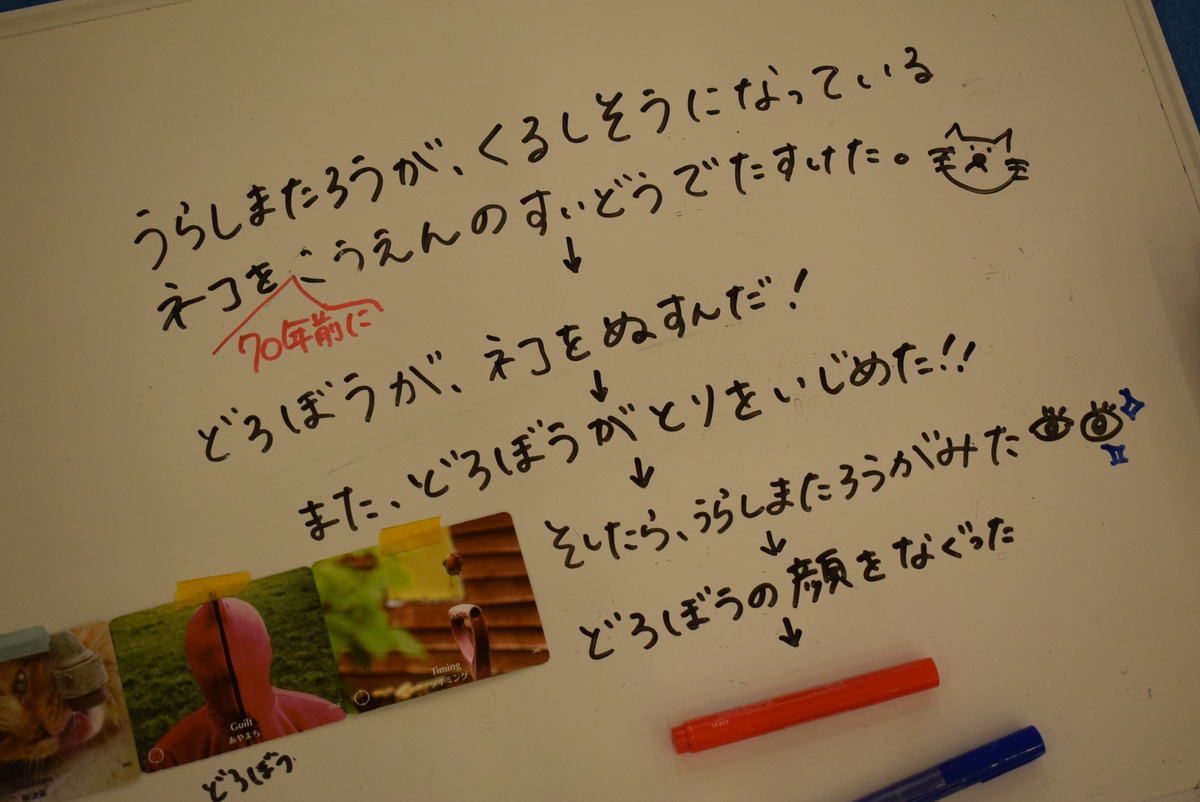 うらしまたろうが、くるしそうになっている
ネコをこうえんのすいどうでたすけた。
↓
70年前に
どろぼうが、ネコをぬすんだ!
↓
また、どろぼうがとりをいじめた!!
↓
そしたら、うらしまたろうがみた
↓
どろぼうの顔をなぐった
↓
Timing
タイミング
Guilt
あやまち
Solutions
解決策
どろぼう